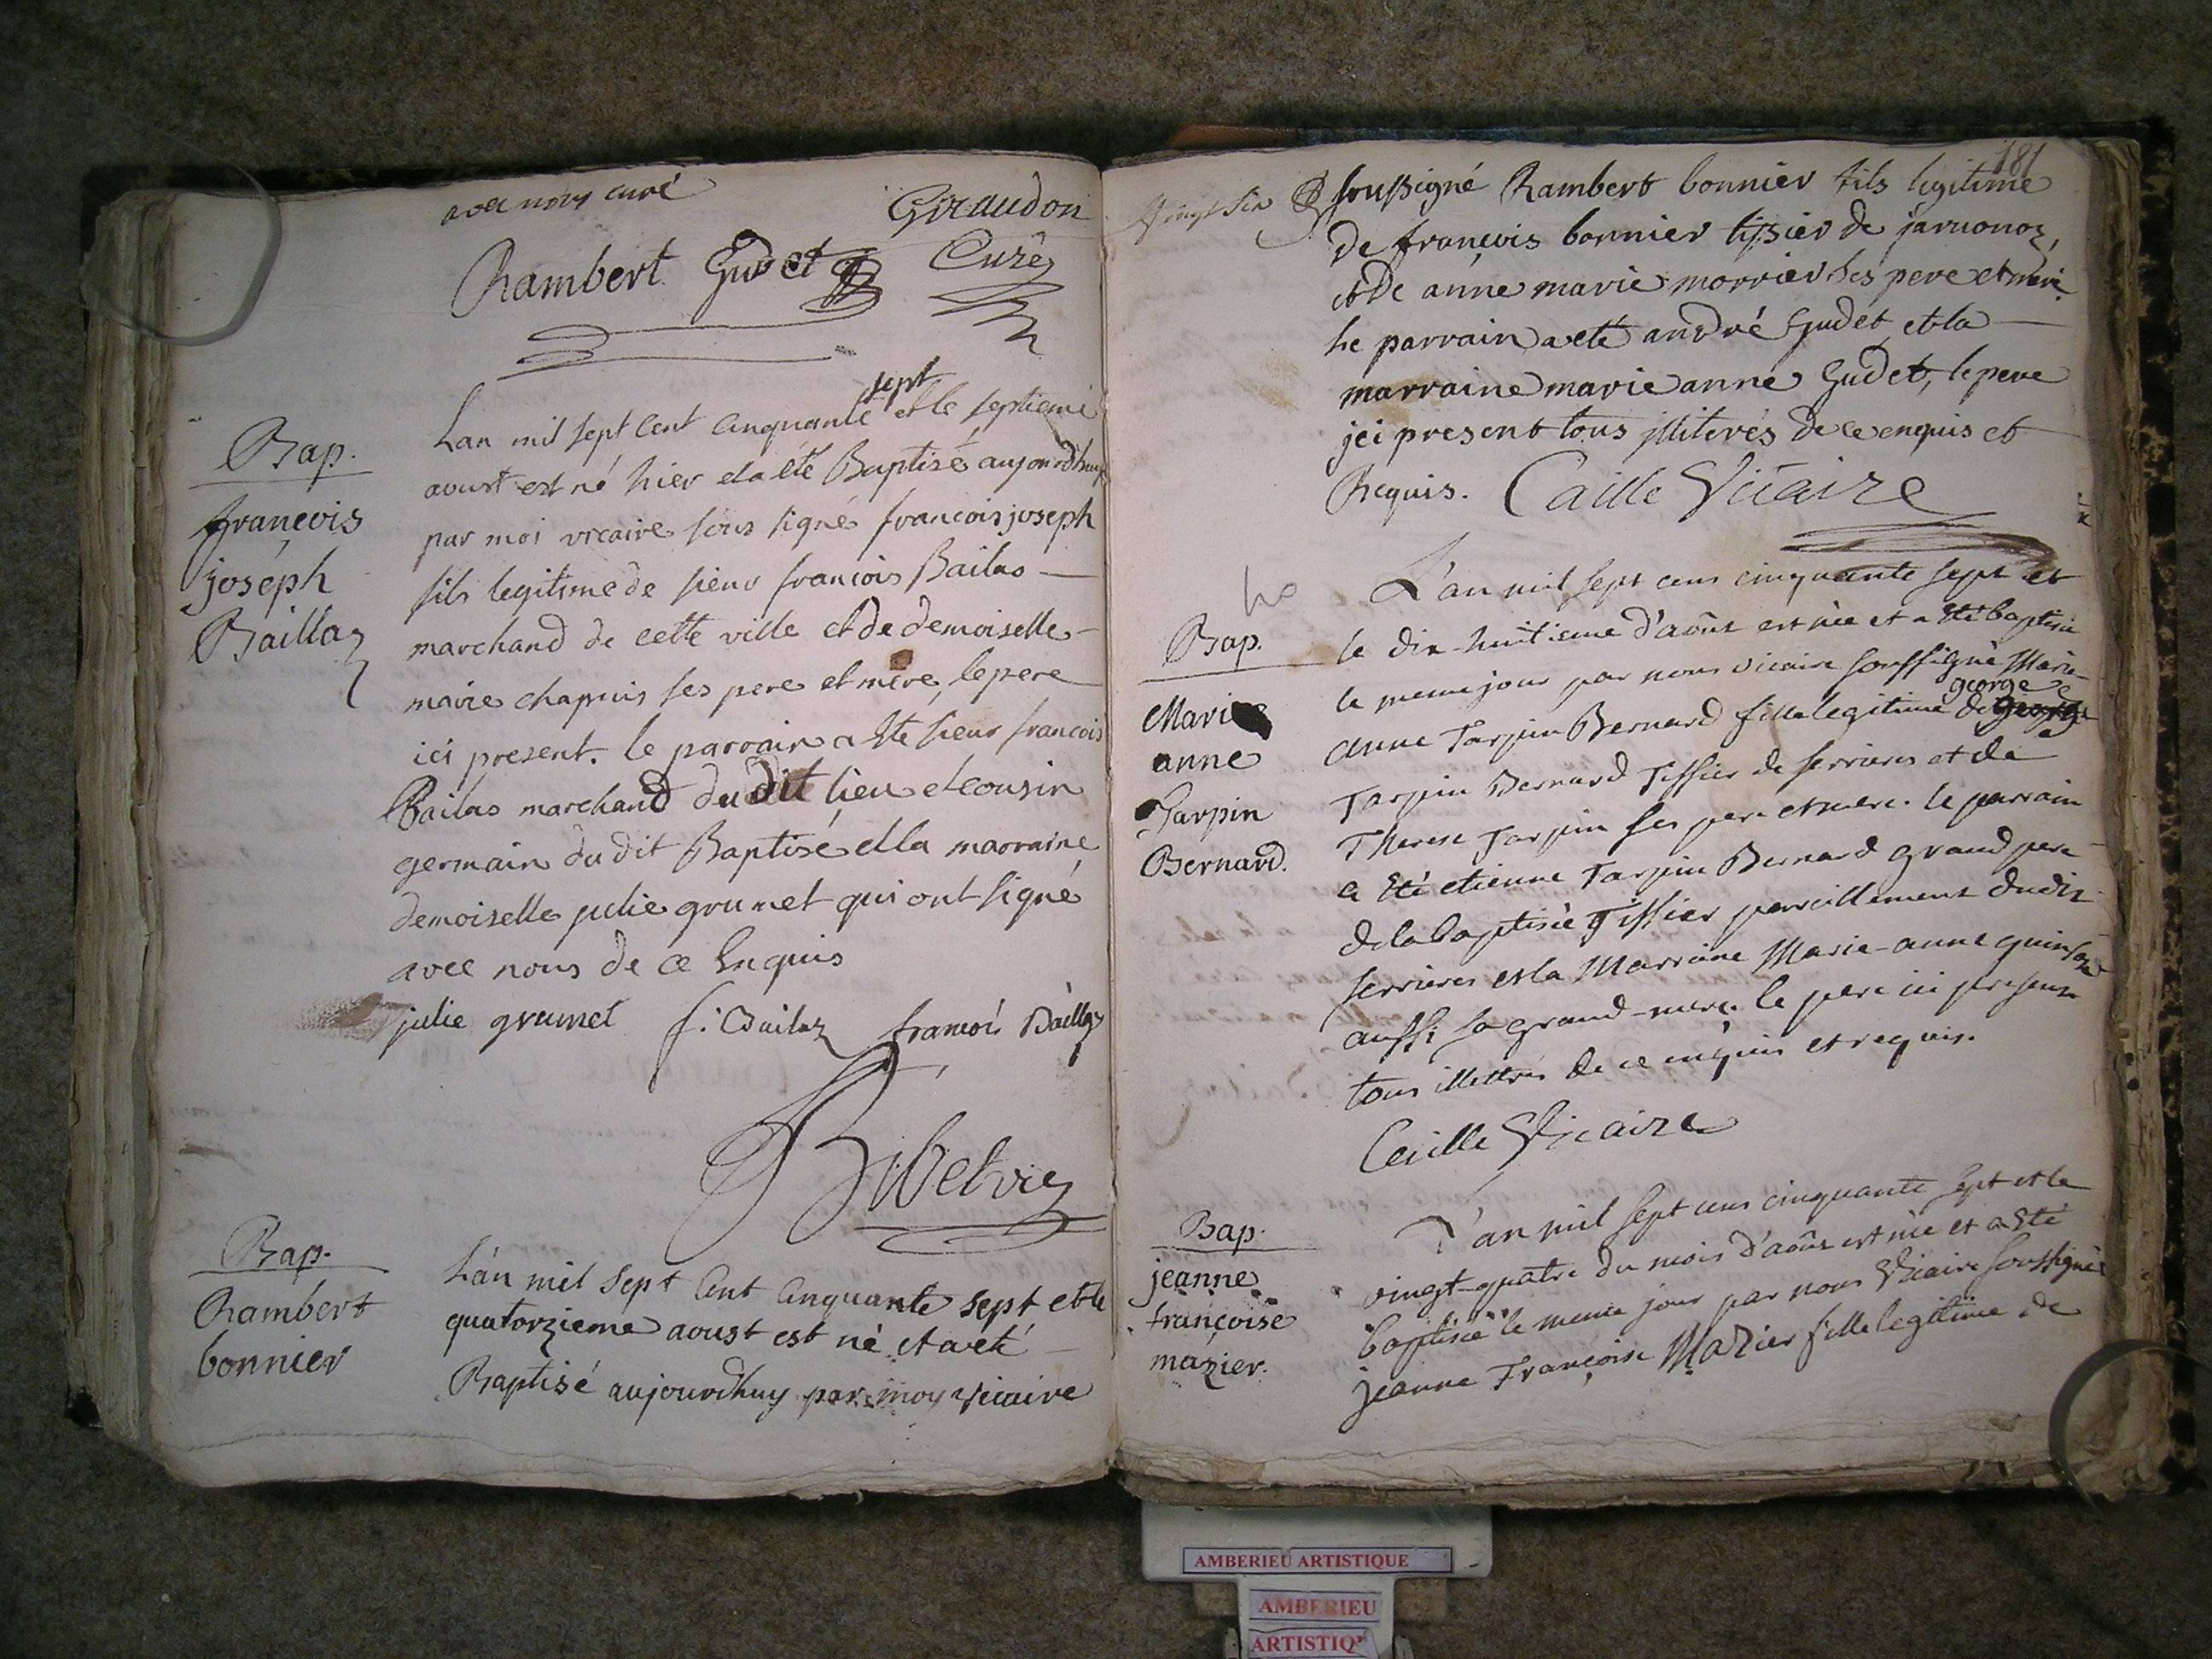 avec nous curé
Giraudon
Rambert Gudet Curé
Bap.
françois
joseph
Baillaz
sept
Lan mil sept Cent Cinquante et le septieme
aoust est né hier et a été Baptisé aujourdhuy
par moi vicaire sous signé francois joseph
fils legitime de sieur francois Bailas
marchand de cette ville et de demoiselle
marie chapuis ses pere et mere, le pere
ici present. le parrain a Eté sieur francois
Bailas marchand du dit lieu et cousin
germain du dit Baptisé et la marraine
demoiselle julie grumet qui ont signé
avec nous de ce Enquis
julie grumet f. Bailaz francois Baillaz
Bap.
Rambert
bonnier
L'an mil sept Cent Cinquante sept et le
quatorzieme aoust est né et a eté
Baptisé aujourdhuy par moy vicaire
181
vingt six
soussigné Rambert bonnier fils legitime
de françois bonnier tissier de
et de anne marie morrier ses pere et mere
Le parrain a eté andré Gudet et la
marraine marie anne Gudet, le pere
jci present tous jlliterés de ce enquis et
Requis. Caille Vicaire
Bap.
Marie
anne
Tarpin
Bernard.
L'an mil sept cens cinquante sept et
le dix-huitieme d'aôut est née et a Eté baptisée
le meme jour par nous vicaire soussigné Marie-
george
anne Tarpin Bernard fille legitime de
Tarpin Bernard Tissier de serrieres et de
Therese Tarpin ses pere et mere. le parrain
a Eté etienne Tarpin Bernard grand pere
de la baptisée Tissier pareillement dudit
serrieres et la Marraine Marie-anne
aussi sa grand-mere. le pere ici present
tous illettrés de ce enquis et requis.
Caille Vicaire
Bap.
jeanne
françoise
mazier.
L'an mil sept cens cinquante sept et le
vingt-quatre du mois d'aôut est née et a Eté
baptisée le meme jour par nous Vicaire soussigné
jeanne Françoise Mazier fille legitime de
AMBERIEU ARTISTIQUE
AMBERIEU
ARTISTIQ